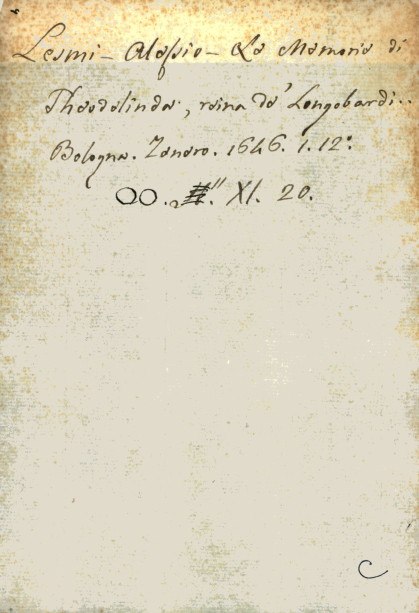 Lesmi - Alessio - La Memorie di
Theodolinda, reina de' Longobardi..
Bologna. Zenero. 1646. 1. 12º.
OO. XI. 20.
C